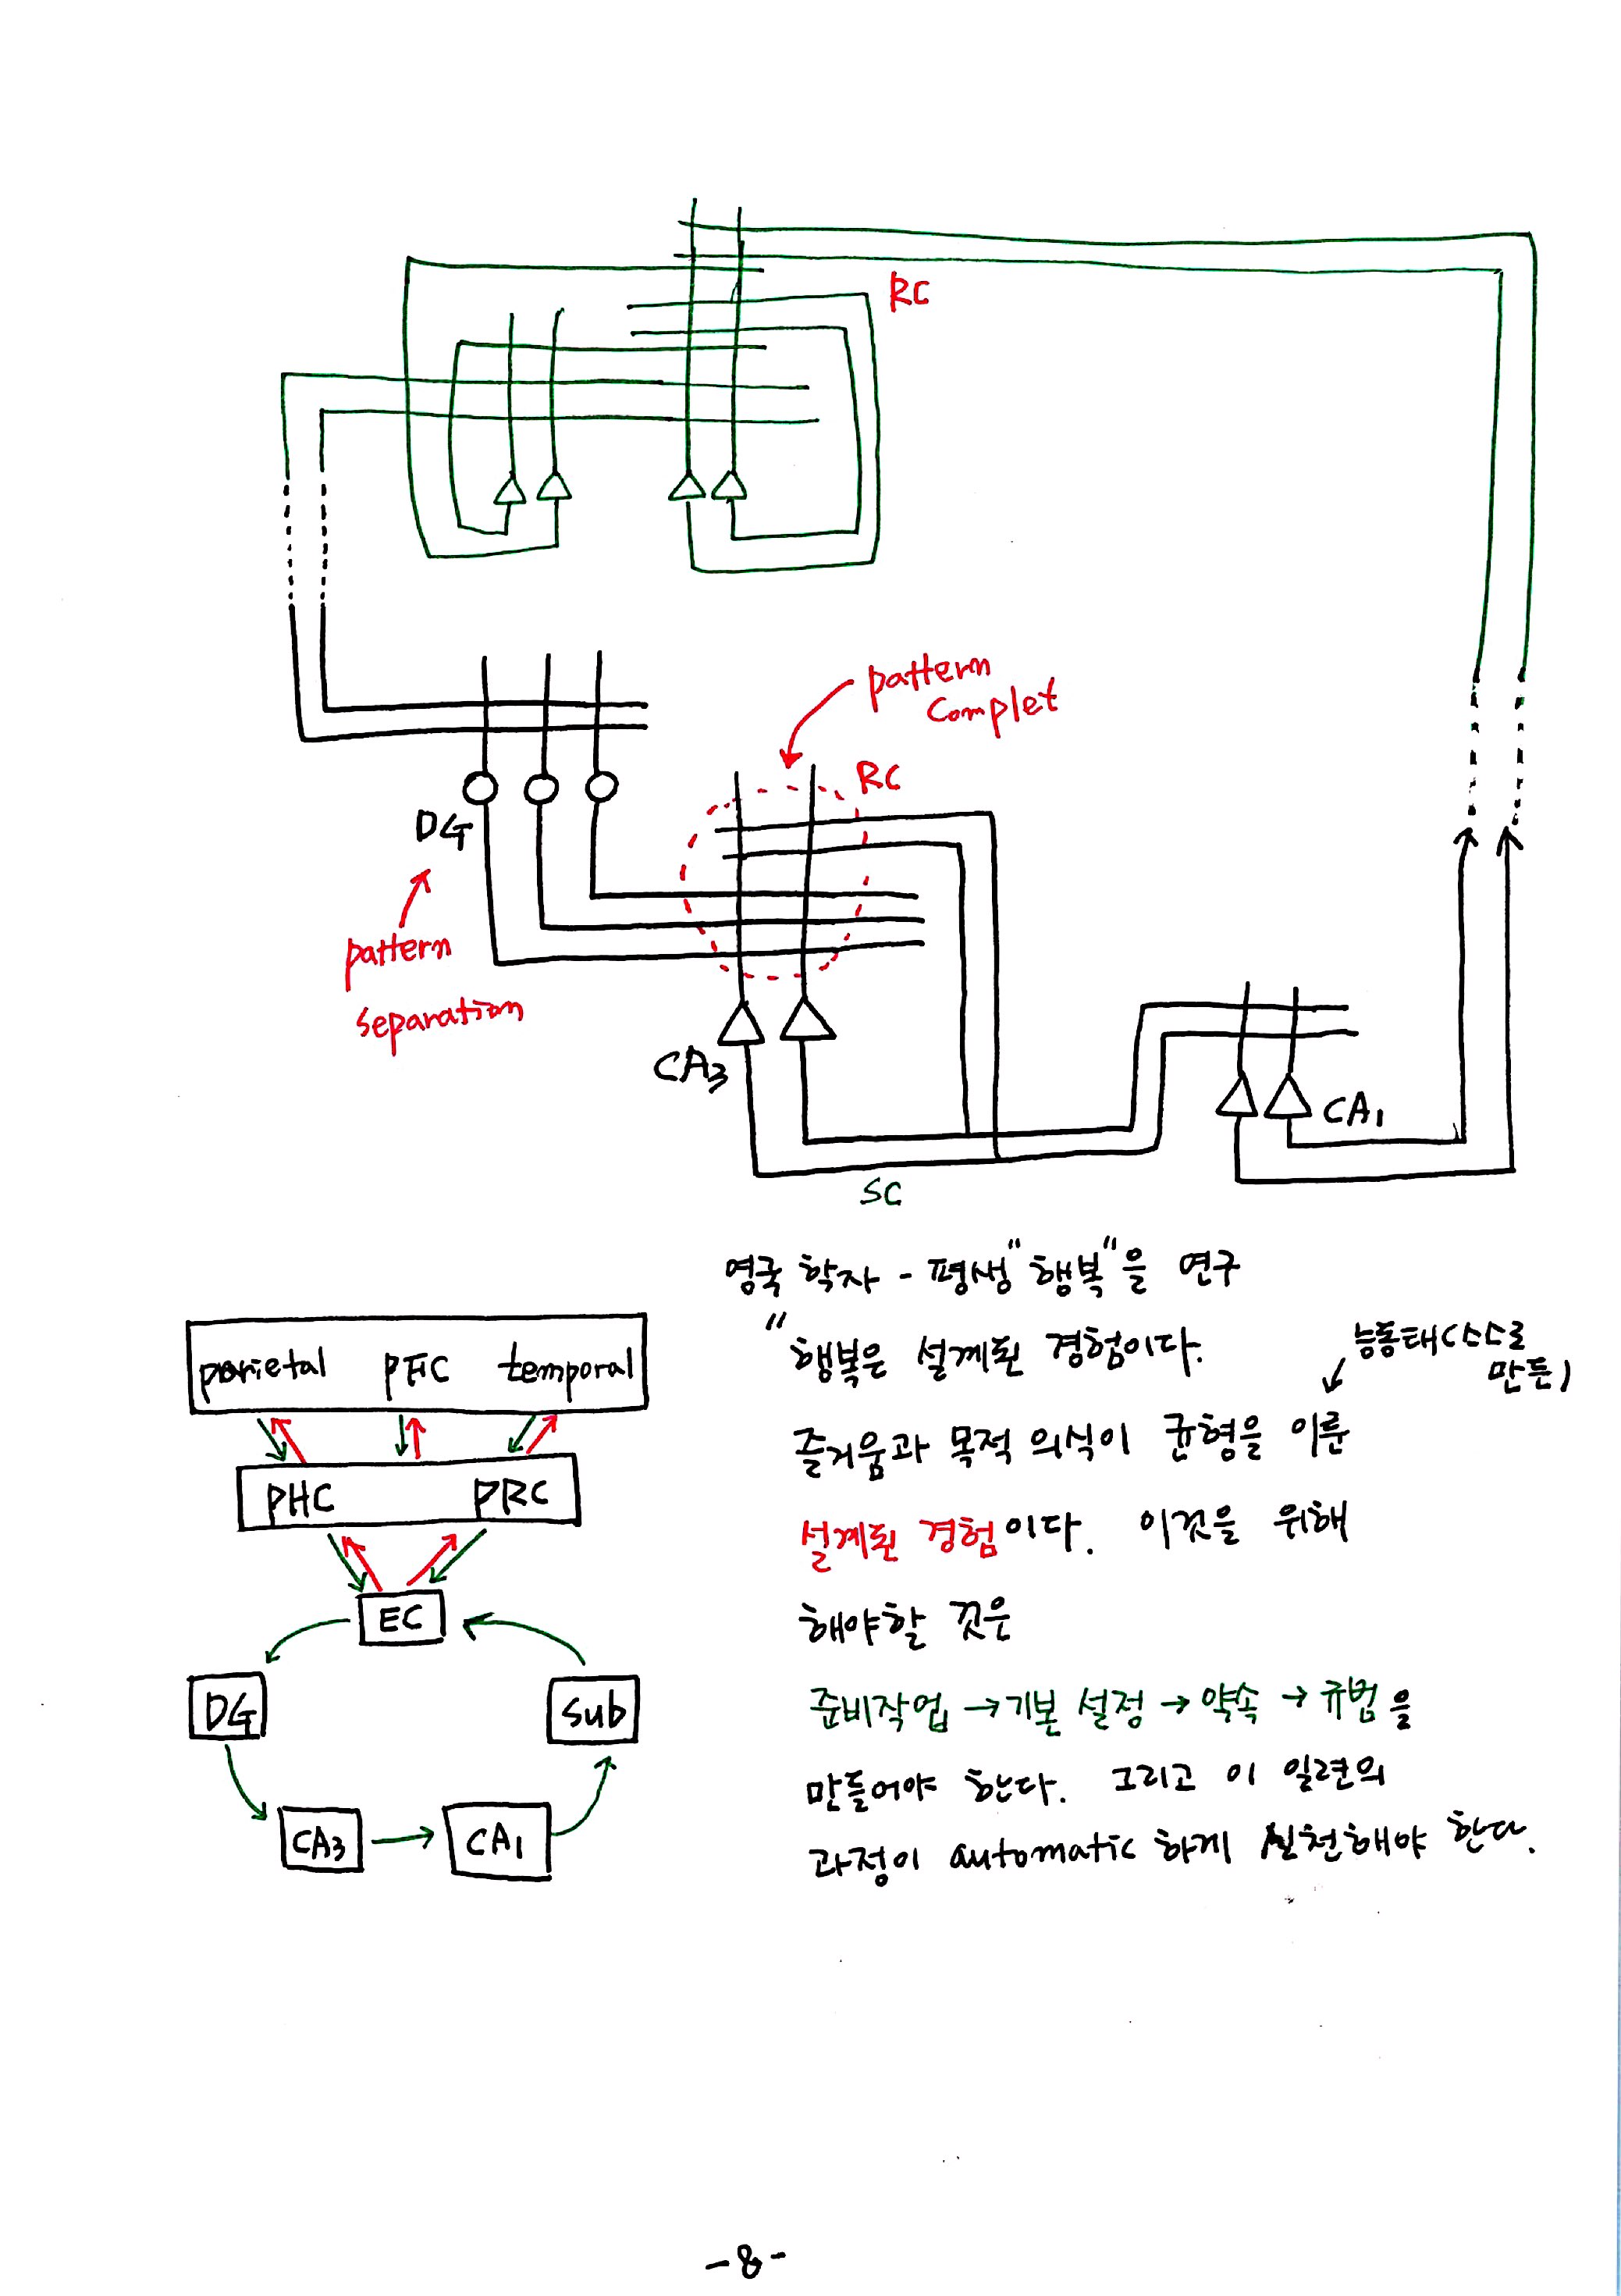 RC
pattern
complet
RC
DG
pattern
separation
CA3
CA1
SC
영국 학자 - 평생 "행복"을 연구
"행복은 설계된 경험이다.
능동태(스스로
만든)
즐거움과 목적 의식이 균형을 이룬
설계된 경험이다. 이것을 위해
해야할 것은
준비작업 → 기본 설정 → 약속 → 규범을
만들어야 한다. 그리고 이 일련의
과정이 automatic 하게 실천해야 한다.
parietal PFC temporal
PHC PRC
EC
DG sub
CA3 CA1
-8-